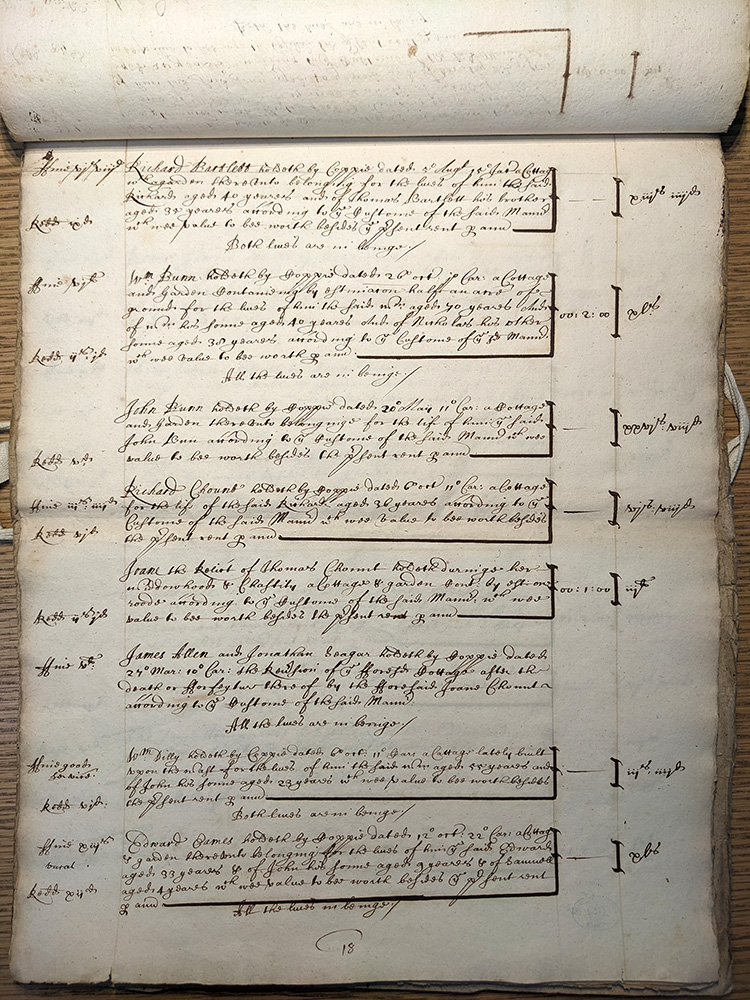 Richard Bartlett holdeth by Coppie dated 2º Augt 15º Jac a Cottage
wth agarden thereunto belonging for the lives of him the said
Richard aged 40 yeares and of Thomas Bartlett his brother
aged 35 yeares according to ye Custome of the said Mannr
wch wee value to bee worth besides ye psent rent p ann
xiijs iiijd
Redd
Both lives are in beinge./
ffine vjs
Wm Bunn holdeth by Coppie dated 26º oct Car: a Cottage
and Garden Contaninge by estimation half an acre of
ground for the lives of him the said Wm aged 70 yeares And
of Wm his sonne aged 40 yeares And of Nicholas his other
sonne aged 38 yeares according to ye Custome of ye sd Mannr
wch wee value to bee worth p ann
00: 2: 00
xls
Redd
All the lives are in beinge./
John Bunn holdeth by Coppie dated 20º May 11º Car: a Cottage
and Garden thereunto belonginge for the life of him ye said
John Bunn according to ye Custome of the said Mannr wch wee
value to bee worth besides the psent rent p ann
xxvjs viijd
Redd vd
Richard Chount holdeth by Coppie dated 6º oct 11º Car: a Cottage
for the life of the said Richard aged 36 yeares according to ye
Custome of the said Mannr wch wee value to bee worth besides
the psent rent p ann
vjs viijd
ffine iijs iiijd
Redd vjd
Joane the Relict of Thomas Chount holdeth duringe her
widdowhoode & Chastity a Cottage & garden Cont: by est: one
roode according to ye Custome of the said Mannr wch wee
value to bee worth besides the psent rent p ann
00: 1: 00
Redd
James Allen and Jonathan Seagar holdeth by Coppie dated
27º Mar: 10º Car: the Revsion of ye fforesd Cottage after the
death or fforfeyture thereof by the fforesaid Joane Chount
according to ye Custome of the said Mannr
ffine
All the lives are in beinge./
Wm Dilly holdeth by Coppie dated 6º oct: 11º Car: a Cottage lately built
upon the wast for the lives of him the said Wm aged 55 yeares and
of John his sonne aged 23 yeares wch wee value to bee worth besides
the psent rent p ann
iijs iiijd
ffine good
service
Redd vjd
Both lives are in beinge./
Edward Eames holdeth by Coppie dated 12º oct: 22º Car: a Cottage
& garden thereunto belonging for the lives of him ye said Edward
aged 33 yeares & of John his sonne aged 9 yeares & of Samuell
aged 4 yeares wch wee value to bee worth besides ye psent rent
p ann
xls
ffine
Redd xijd
All the lives in beinge./
18